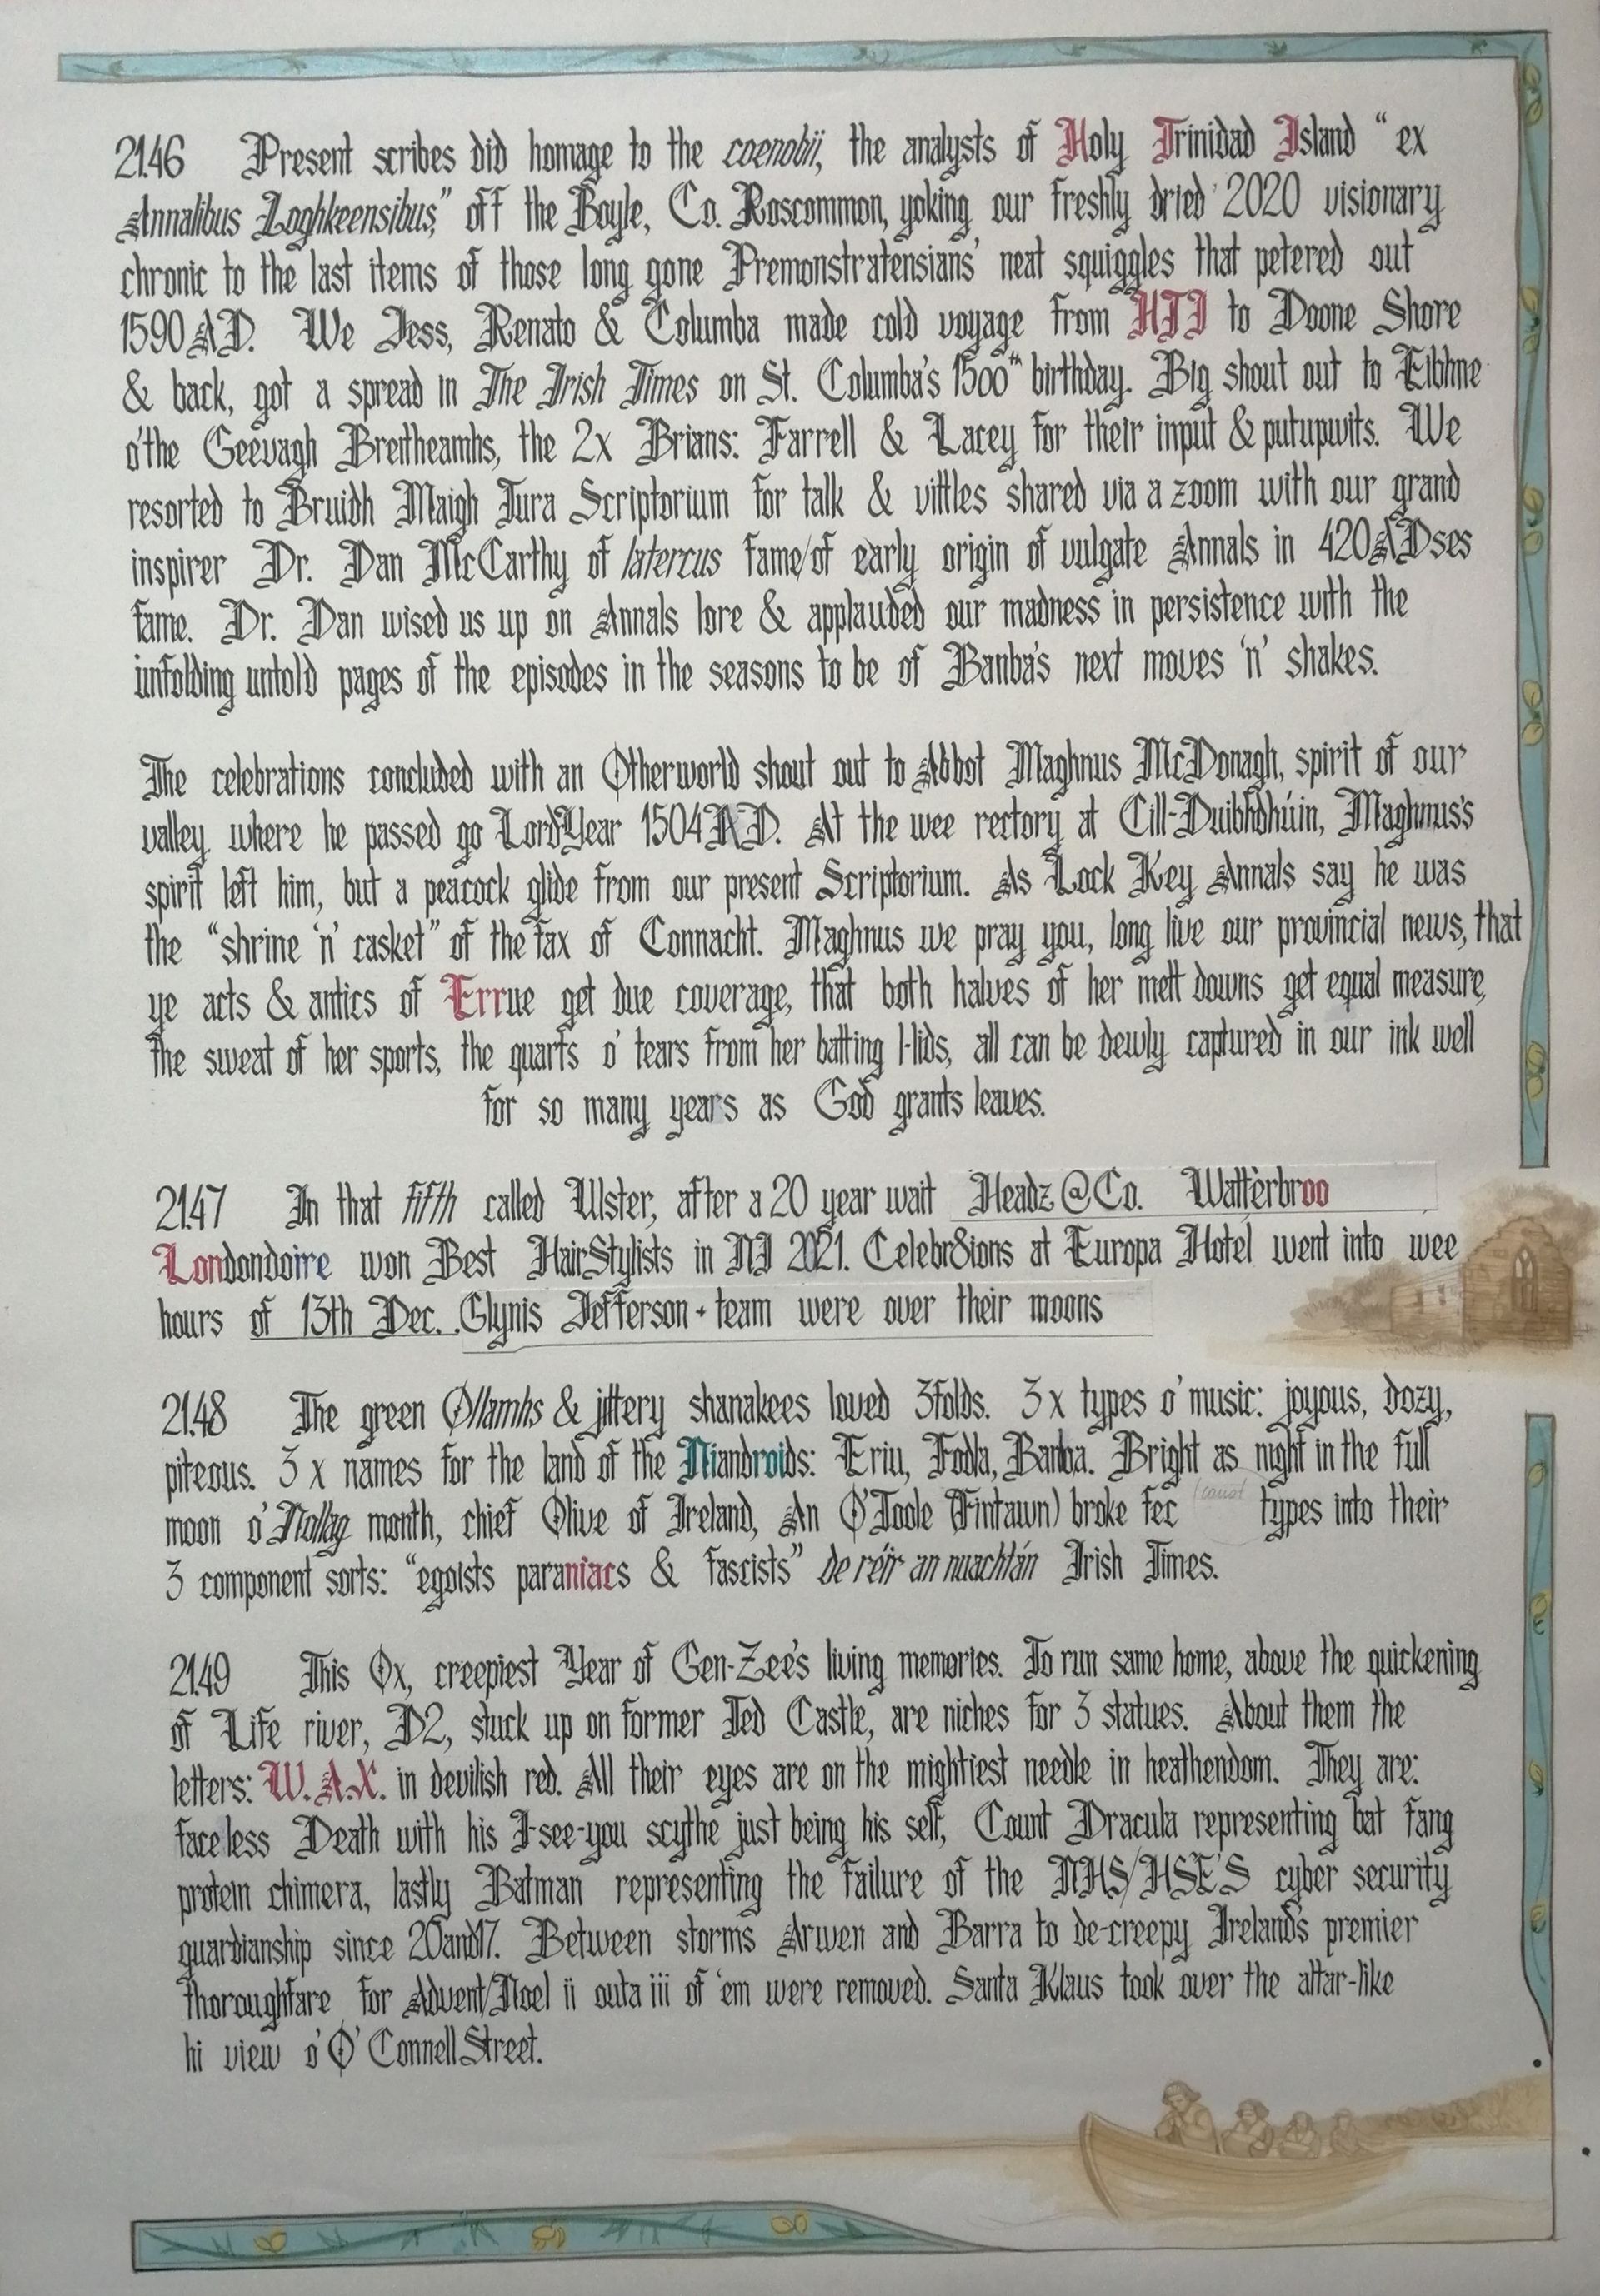 21.46 Present scribes did homage to the coenobii, the analysts of Holy Trinidad Island "ex
Annalibus Loghkeensibus," off the Boyle, Co. Roscommon, yoking our freshly dried 2020 visionary
chronic to the last items of those long gone Premonstratensians' neat squiggles that petered out
1590AD. We Jess, Renato & Columba made cold voyage from HTI to Doone Shore
& back, got a spread in The Irish Times on St. Columba's 1500th birthday. Big shout out to Eibhne
o'the Geevagh Breitheamhs, the 2x Brians: Farrell & Lacey for their input & putupwits. We
resorted to Bruidh Maigh Tura Scriptorium for talk & vittles shared via a zoom with our grand
inspirer Dr. Dan McCarthy of latercus fame/of early origin of vulgate Annals in 420ADses
fame. Dr. Dan wised us up on Annals lore & applauded our madness in persistence with the
unfolding untold pages of the episodes in the seasons to be of Banba's next moves 'n' shakes.
The celebrations concluded with an Otherworld shout out to Abbot Maghnus McDonagh, spirit of our
valley where he passed go LordYear 1504AD. At the wee rectory at Cill-Duibhdhúin, Maghnus's
spirit left him, but a peacock glide from our present Scriptorium. As Lock Key Annals say he was
the "shrine 'n' casket" of the fax of Connacht. Maghnus we pray you, long live our provincial news, that
ye acts & antics of Errue get due coverage, that both halves of her melt downs get equal measure,
the sweat of her sports, the quarts o' tears from her batting I-lids, all can be dewly captured in our ink well
for so many years as God grants leaves.
21.47 In that fifth called Ulster, after a 20 year wait Headz@Co. Watterbroo
Londondoire won Best HairStylists in NI 2021. Celebr8ions at Europa Hotel went into wee
hours of 13th Dec. Glynis Jefferson + team were over their moons
21.48 The green Ollamhs & jittery shanakees loved 3folds. 3 x types o' music: joyous, dozy,
piteous. 3 x names for the land of the Niandroids: Eriu, Fodla, Banba. Bright as night in the full
moon o' Nollag month, chief Olive of Ireland, An O'Toole (Fintawn) broke fec types into their
3 component sorts: "egoists paraniacs & fascists" de réir an nuachtán Irish Times.
21.49 This Ox, creepiest Year of Gen-Zee's living memories. To run same home, above the quickening
of Life river, D2, stuck up on former Ted Castle, are niches for 3 statues. About them the
letters: W.A.X. in devilish red. All their eyes are on the mightiest needle in heathendom. They are:
faceless Death with his I-see-you scythe just being his self, Count Dracula representing bat fang
protein chimera, lastly Batman representing the failure of the NHS/HSE'S cyber security
guardianship since 20and17. Between storms Arwen and Barra to de-creepy Ireland's premier
thoroughfare for Advent/Noel ii outa iii of 'em were removed. Santa Klaus took over the altar-like
hi view o' O' Connell Street.